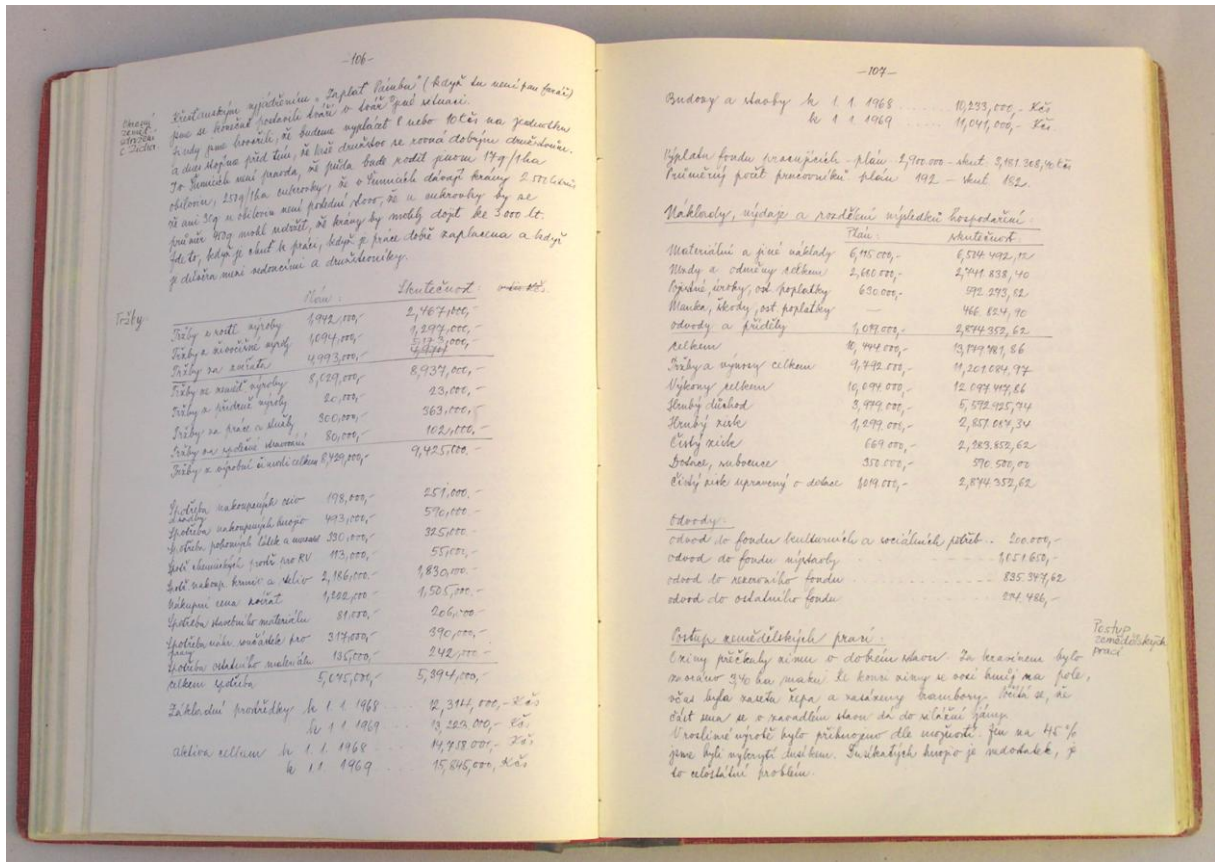 -106-
Křesťanským vyjádřením „Zaplať Pámbu" (když tu není pan farář)
jsme se konečně postavili tváří v tvář jiné situaci.
hovořili, že budeme vyplácet 8 nebo 10 Kčs na jednotku
a dnes stojíme před tím, že naše družstvo se rovná dobrým družstvům.
To není pravda, že půda bude rodit jenom 17q/1ha
obilovin, 257q/1ha cukrovky, že v Senicích dávají krávy 2.500 litrů
že ani 30q u obilovin není poslední slovo, že u cukrovky by se
průměr 400q mohl udržet, že krávy by mohly dojít ke 3000 lt.
Jde to, když je chuť k práci, když je práce dobře zaplacena a když
je důvěra mezi vedoucími a družstevníky.
Tržby.
Plán: Skutečnost:
Tržby z rostl. výroby 1,942,000,- 2,467,000,-
Tržby z živočišné výroby 1,094,000,- 1,297,000,-
Tržby za zvířata 4,993,000,- 5,173,000,-
Tržby ze zeměď. výroby 8,029,000,- 8,937,000,-
Tržby z přidruž. výroby 20,000,- 23,000,-
Tržby za práce a služby 300,000,- 363,000,-
Tržby za společné stravování 80,000,- 102,000,-
Tržby z výrobní činnosti celkem 8,429,000,- 9,425,000.-
Spotřeba nakoupených osiv 198,000,- 251,000.-
a sadby
Spotřeba nakoupených hnojiv 493,000,- 570,000,-
Spotřeba pohonných látek a maziv 330,000,- 325,000-
Spotř. chemických prostř. pro RV 113,000,- 55,000,-
Spotř. nakoup. krmiv a steliv 2,186,000.- 1,830,000.-
Nákupní cena zvířat 1,222,000- 1,505,000.-
Spotřeba stavebního materiálu 81.000,- 206,000-
Spotřeba náhr. součástek pro 317.000,- 390,000,-
opravy
Spotřeba ostatního materiálu 135,000,- 242,000,-
celkem spotřeba 5,075,000,- 5,394,000,-
Základní prostředky k 1.1.1968 ... 12,314,000,- Kčs
k 1.1.1969 ... 13,223,000,- Kčs
aktiva celkem k 1.1.1968 ... 14,718,000,- Kčs
k 1.1.1969 ... 15,845,000, Kčs
-107-
Budovy a stavby k 1.1.1968 ....... 10,233,000,- Kčs
k 1.1.1969 ....... 11,041,000,- Kčs
Výplata fondu pracujících - plán - 2,900.000 - skut. 3,181.308,40 Kčs
Průměrný počet pracovníků - plán 192 - skut. 182.
Náklady, výdaje a rozdělení výsledků hospodaření:
Plán: skutečnost:
Materiální a jiné náklady 6,115.000,- 6,504.492,12
Mzdy a odměny celkem 2,610.000,- 2,741.838,40
Pojistné, úroky, ost. poplatky 630.000,- 592.273,82
Manka, škody, ost. poplatky — 466.824,90
odvody a příděly 1,019.000,- 2,874.352,62
celkem 10,444.000,- 13,179.781,86
Tržby a výnosy celkem 9,792.000,- 11,201.084,97
Výkony celkem 10,094.000,- 12.097.417,86
Hrubý důchod 3,979.000,- 5,592.925,74
Hrubý zisk 1,299.000,- 2,851.087,34
Čistý zisk 669.000,- 2,283.852,62
Dotace, subvence 350.000,- 590.500,00
Čistý zisk upravený o dotace 1,019.000,- 2,874.352,62
Odvody:
odvod do fondu kulturních a sociálních potřeb .. 200.000,-
odvod do fondu výstavby ... 1,051.650,-
odvod do rezervního fondu ... 835.347,62
odvod do ostatního fondu ... 204.486,-
Postup
zemědělských
prací
Postup zemědělských prací:
Oziny přečkaly zimu v dobrém stavu. Za kravínem bylo
zaoráno 3,40 ha máku. Ke konci zimy se vozí hnůj na pole,
včas byla zaseta řepa a zasázeny brambory. Počítá se, že
část sena se v zavadlém stavu dá do silážní jámy.
V rostlinné výrobě bylo přihnojeno dle možností. Jen na 45%
jsme byli vykrytí dusíkem. Dusíkatých hnojiv je nedostatek, je
to celostátní problém.